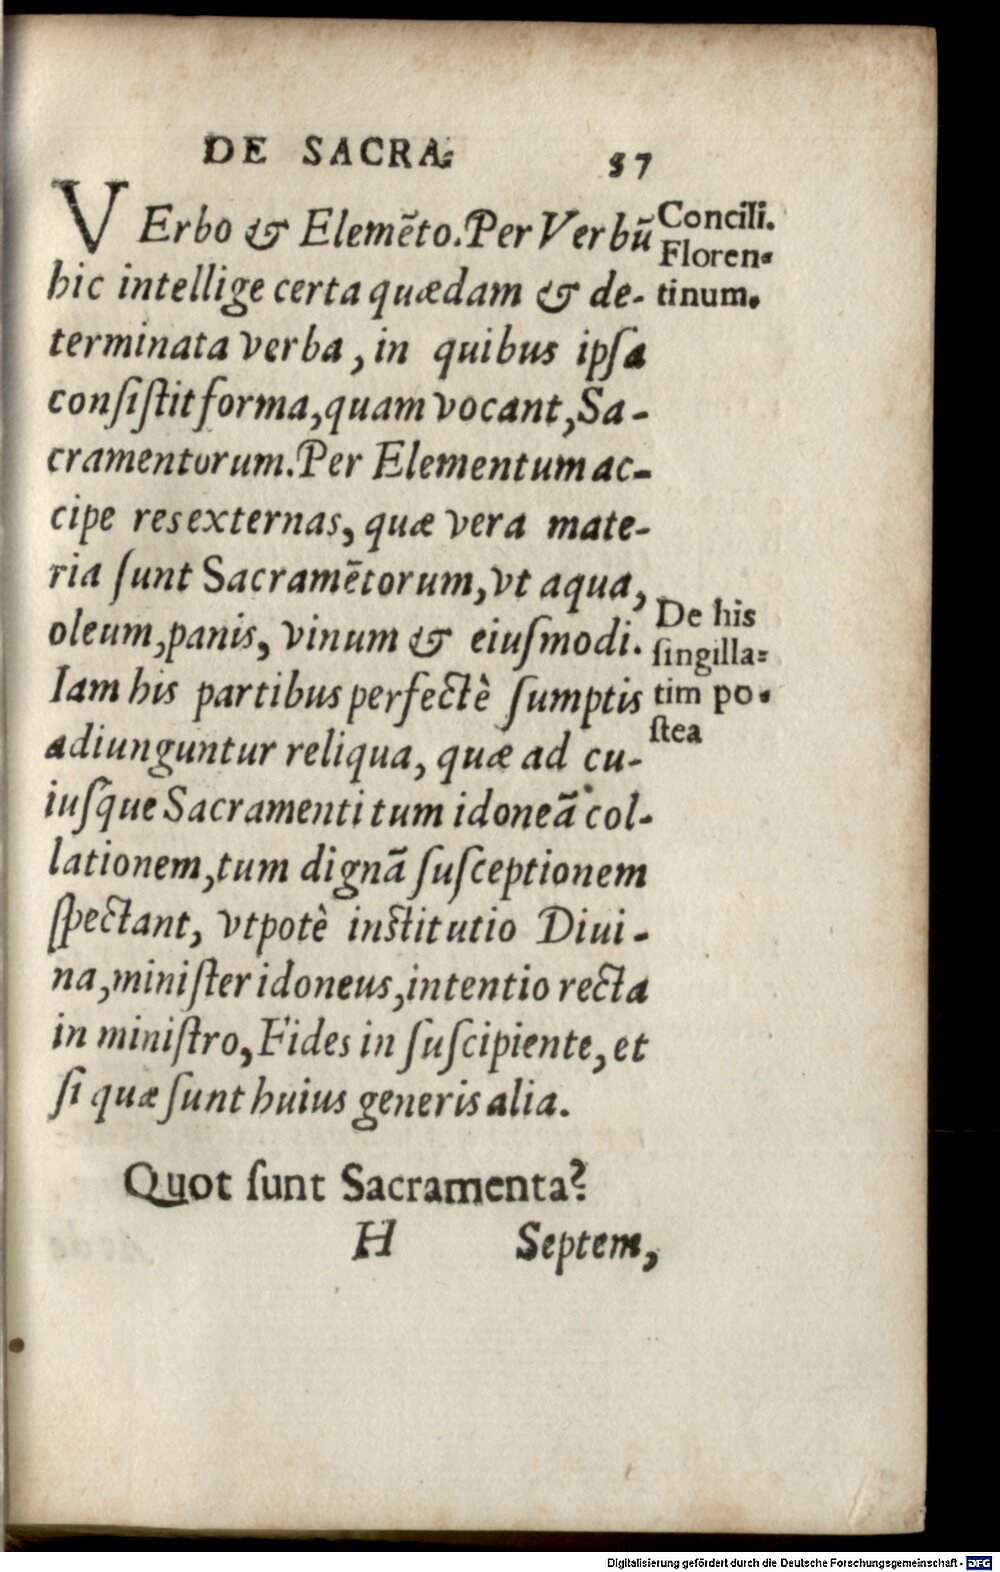 DE SACRA⸗ 57
VErbo & Elemēto. Per Verbū
hic intellige certa quædam & de-
terminata verba, in quibus ipſa
conſiſtit forma, quam vocant, Sa-
cramentorum. Per Elementum ac-
cipe res externas, quæ vera mate-
ria ſunt Sacramētorum, vt aqua,
oleum, panis, vinum & eiuſmodi.
Iam his partibus perfectè ſumptis
adiunguntur reliqua, quæ ad cu-
iuſque Sacramenti tum idoneā col-
lationem, tum dignā ſuſceptionem
ſpectant, vtpotè inſtitutio Diui-
na, miniſter idoneus, intentio recta
in miniſtro, Fides in ſuſcipiente, et
ſi quæ ſunt huius generis alia.
Concili.
Floren⸗
tinum.
De his
ſingilla⸗
tim po⸗
ſtea
Quot ſunt Sacramenta?
H Septem,
Digitalisierung gefördert durch die Deutsche Forschungsgemeinschaft - DFG